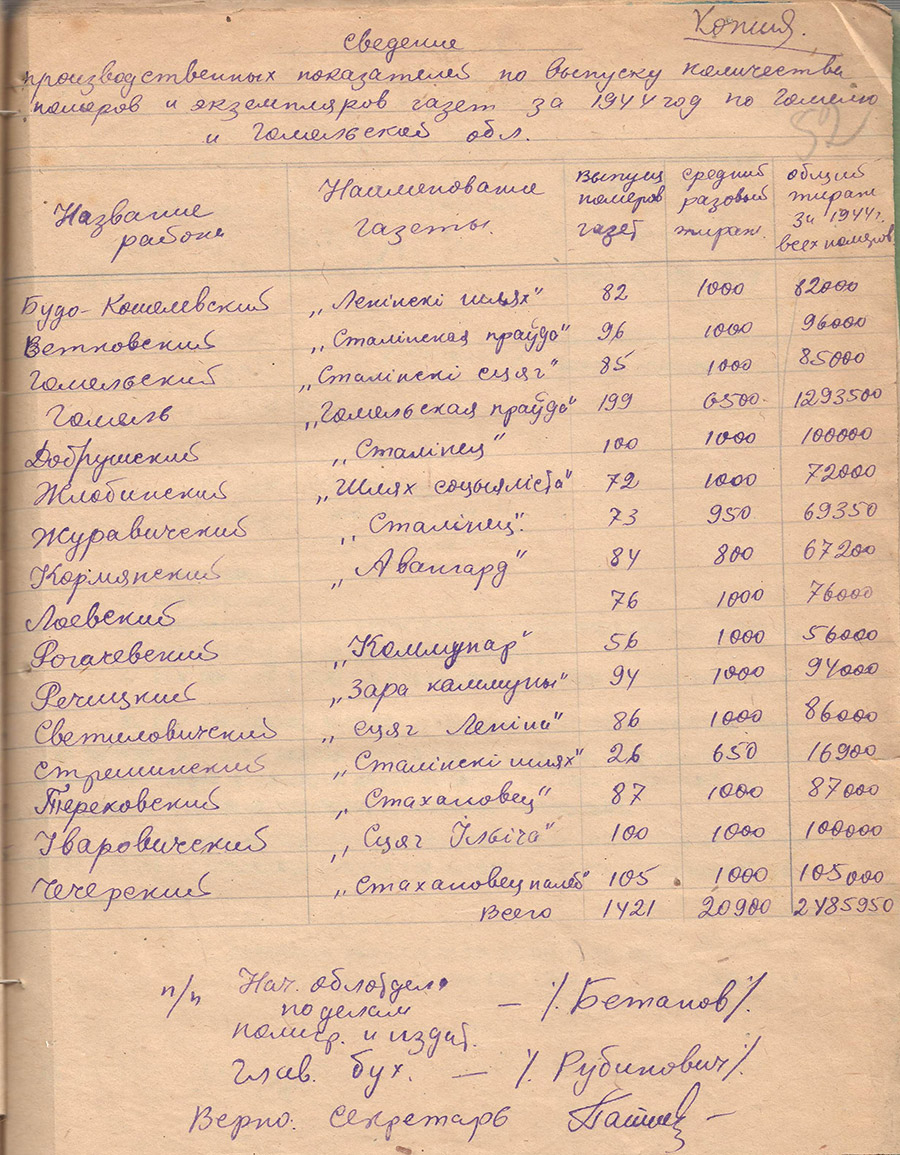 Копия.
Сведение
производственных показателей по выпуску количества
номеров и экземпляров газет за 1944 год по Гомелю
и Гомельской обл.
52
Название района | Наименование газеты. | Выпущ номеров газет | средний разовый тираж. | общий тираж за 1944 г. всех номеров
Будо-Кошелевский „Ленінскі шлях" 82 1000 82000
Ветковский „Сталінская праўда" 96 1000 96000
Гомельский „Сталінскі сцяг" 85 1000 85000
Гомель „Гомельская праўда" 199 6500 1293500
Добрушский „Сталінец" 100 1000 100000
Жлобинский „Шлях соцыяліста" 72 1000 72000
Журавичский „Сталінец". 73 950 69350
Кормянский „Авангард" 84 800 67200
Лоевский 76 1000 76000
Рогачевский „Коммунар" 56 1000 56000
Речицкий „Зара каммуны" 94 1000 94000
Светиловичский „сцяг Леніна" 86 1000 86000
Стрешинский „Сталінскі шлях" 26 650 16900
Тереховский „Стахановец" 87 1000 87000
Уваровичский „Сцяг Ільіча" 100 1000 100000
Чечерский „Стахановец палей" 105 1000 105000
Всего 1421 20900 2485950
п/п Нач. облотдела
по делам — /. Бетанов /.
полигр. и издат.
Глав. бух. — /. Рубинович /.
Верно. Секретарь